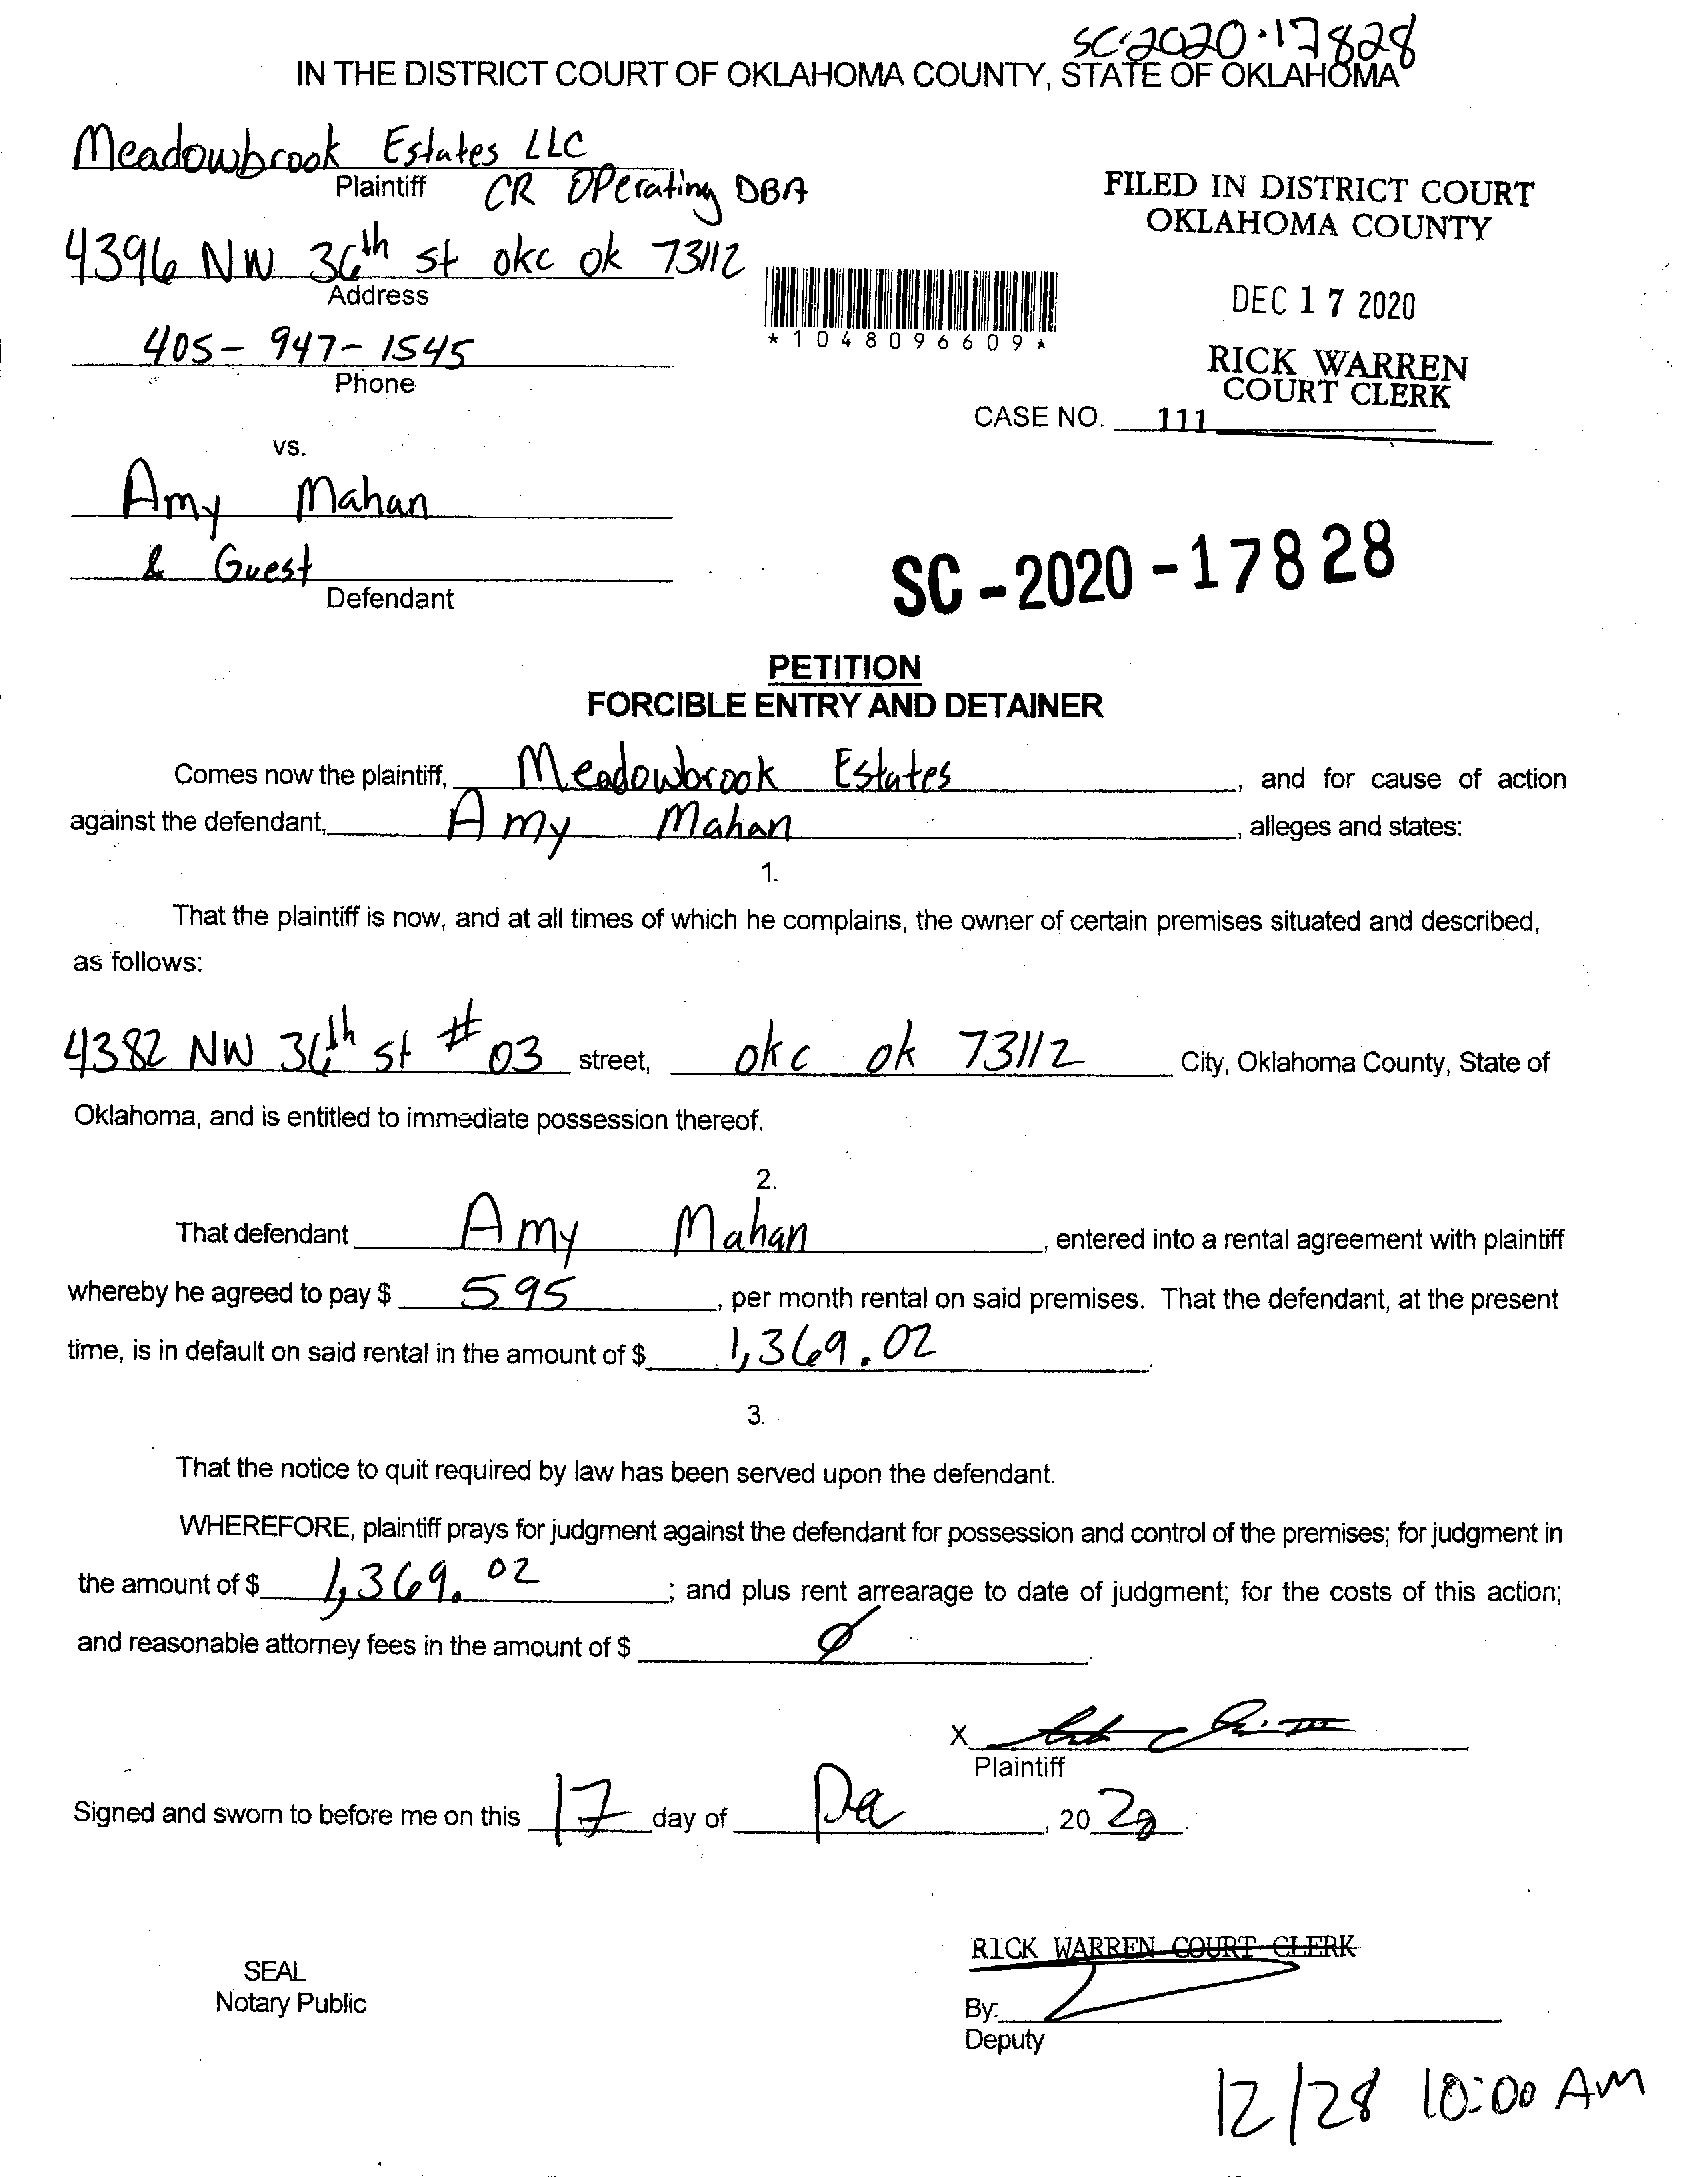 SC-2020-17828
IN THE DISTRICT COURT OF OKLAHOMA COUNTY, STATE OF OKLAHOMA
Meadowbrook Estates LLC
Plaintiff CR Operating DBA
4396 NW 36th st okc ok 73112
Address
405-947-1545
Phone
FILED IN DISTRICT COURT
OKLAHOMA COUNTY
DEC 17 2020
RICK WARREN
COURT CLERK
*1048096609*
CASE NO. 111
vs.
Amy Mahan
& Guest
Defendant
SC-2020-17828
PETITION
FORCIBLE ENTRY AND DETAINER
Comes now the plaintiff, Meadowbrook Estates, and for cause of action
against the defendant, Amy Mahan, alleges and states:
1.
That the plaintiff is now, and at all times of which he complains, the owner of certain premises situated and described,
as follows:
4382 NW 36th st #03 street, okc ok 73112 City, Oklahoma County, State of
Oklahoma, and is entitled to immediate possession thereof.
2.
That defendant Amy Mahan, entered into a rental agreement with plaintiff
whereby he agreed to pay $ 595, per month rental on said premises. That the defendant, at the present
time, is in default on said rental in the amount of $ 1,369.02.
3.
That the notice to quit required by law has been served upon the defendant.
WHEREFORE, plaintiff prays for judgment against the defendant for possession and control of the premises; for judgment in
the amount of $ 1,369.02; and plus rent arrearage to date of judgment; for the costs of this action;
and reasonable attorney fees in the amount of $ Ø.
X
Plaintiff
Signed and sworn to before me on this 17 day of Dec, 2020.
RICK WARREN COURT CLERK
SEAL
Notary Public
By:
Deputy
12/28 10:00 AM